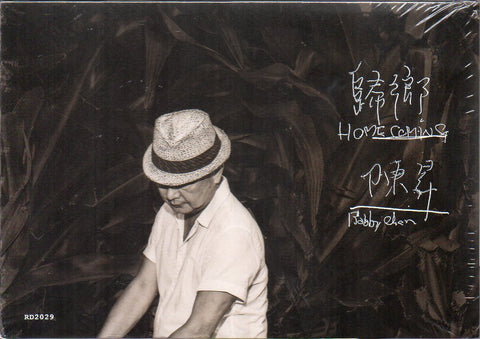 歸鄉
HOMECOMING
陳昇
Bobby Chen
RD2029